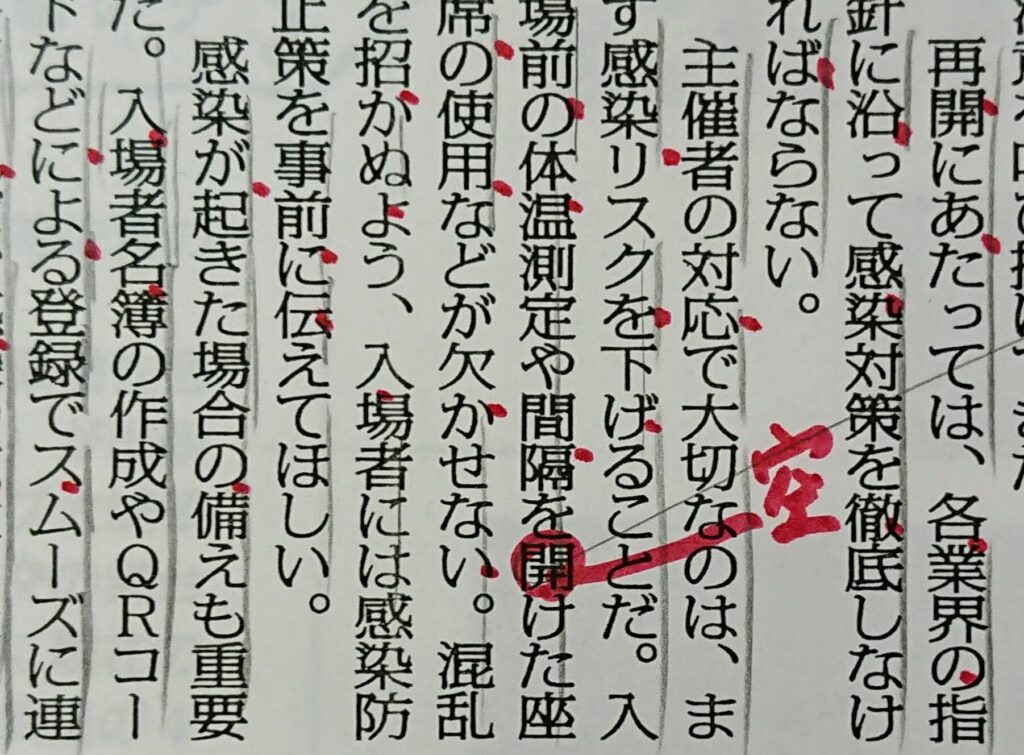 再開にあたっては、各業界の指
針に沿って感染対策を徹底しなけ
ればならない。
主催者の対応で大切なのは、ま
ず感染リスクを下げることだ。入
場前の体温測定や間隔を開けた座
空
席の使用などが欠かせない。混乱
を招かぬよう、入場者には感染防
止策を事前に伝えてほしい。
感染が起きた場合の備えも重要
だ。入場者名簿の作成やＱＲコー
ドなどによる登録でスムーズに連